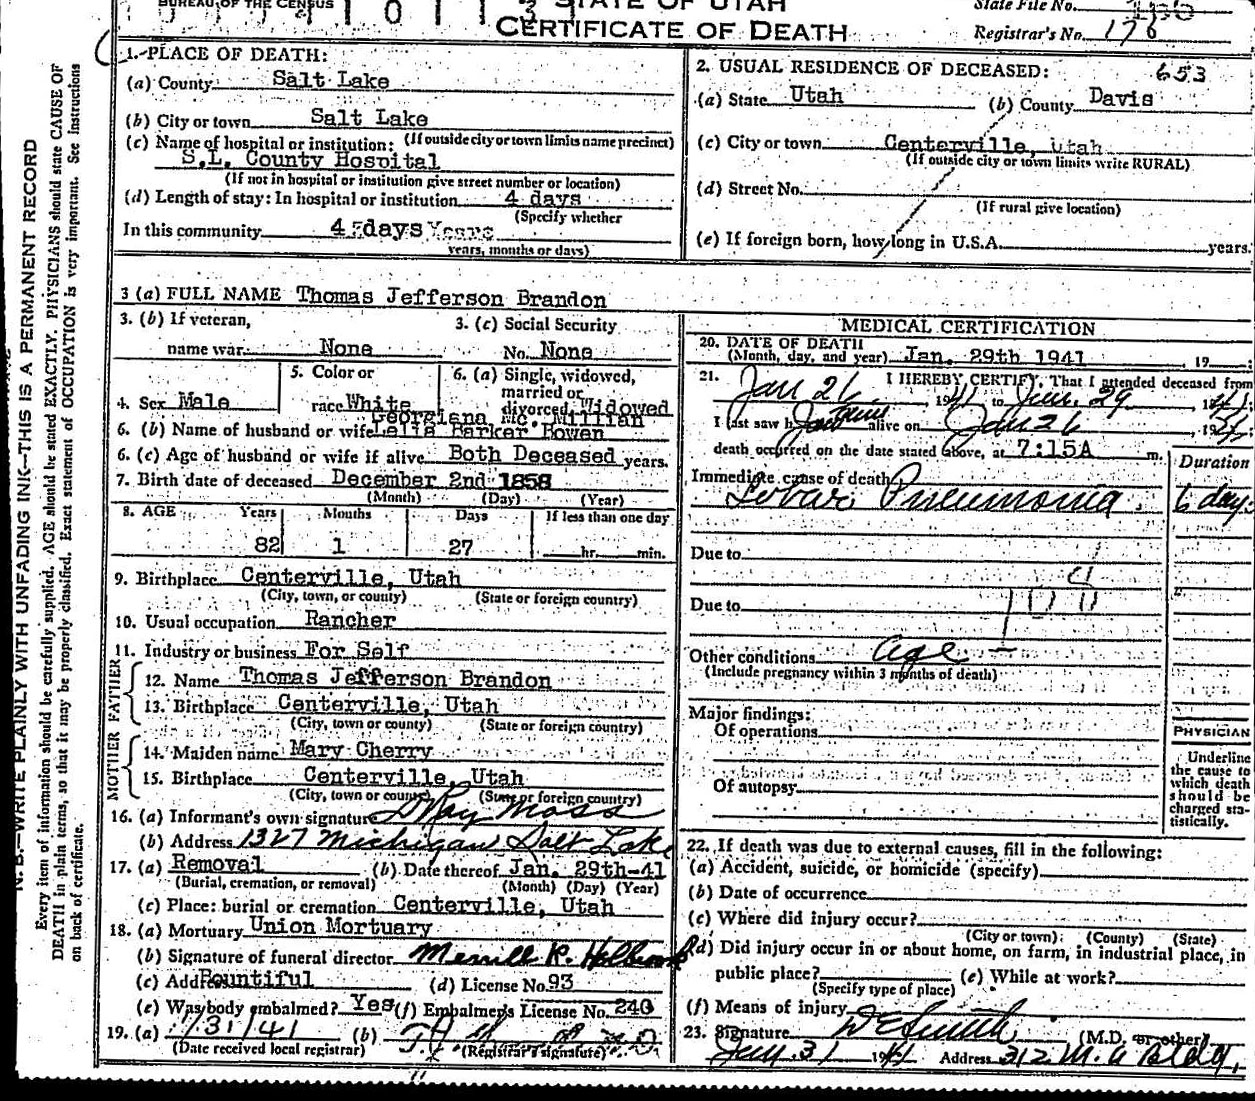 BUREAU OF THE CENSUS
STATE OF UTAH
CERTIFICATE OF DEATH
State File No.
Registrar's No. 176
N. B.—WRITE PLAINLY WITH UNFADING INK—THIS IS A PERMANENT RECORD
Every item of information should be carefully supplied. AGE should be stated EXACTLY. PHYSICIANS should state CAUSE OF
DEATH in plain terms, so that it may be properly classified. Exact statement of OCCUPATION is very important. See Instructions
on back of certificate.
1. PLACE OF DEATH:
(a) County Salt Lake
(b) City or town Salt Lake
(If outside city or town limits name precinct)
(c) Name of hospital or institution:
S.L. County Hospital
(If not in hospital or institution give street number or location)
(d) Length of stay: In hospital or institution 4 days
(Specify whether
In this community 4 days Years
years, months or days)
2. USUAL RESIDENCE OF DECEASED: 653
(a) State Utah (b) County Davis
(c) City or town Centerville, Utah
(If outside city or town limits write RURAL)
(d) Street No.
(If rural give location)
(e) If foreign born, how long in U.S.A. years.
3 (a) FULL NAME Thomas Jefferson Brandon
3. (b) If veteran,
name war None
3. (c) Social Security
No. None
4. Sex Male
5. Color or
race White
6. (a) Single, widowed,
married or
divorced Widowed
Georgiana Mc. Millian
6. (b) Name of husband or wife Lelia Barker Bowen
6. (c) Age of husband or wife if alive Both Deceased years.
7. Birth date of deceased December 2nd 1858
(Month) (Day) (Year)
8. AGE Years Months Days If less than one day
82 1 27 hr. min.
9. Birthplace Centerville, Utah
(City, town, or county) (State or foreign country)
10. Usual occupation Rancher
11. Industry or business For Self
FATHER
12. Name Thomas Jefferson Brandon
13. Birthplace Centerville, Utah
(City, town or county) (State or foreign country)
MOTHER
14. Maiden name Mary Cherry
15. Birthplace Centerville, Utah
(City, town or county) (State or foreign country)
16. (a) Informant's own signature May Moss
(b) Address 1327 Michigan Salt Lake
17. (a) Removal (b) Date thereof Jan. 29th-41
(Burial, cremation, or removal) (Month) (Day) (Year)
(c) Place: burial or cremation Centerville, Utah
18. (a) Mortuary Union Mortuary
(b) Signature of funeral director Merrill R. Holbrook
(c) Address Bountiful (d) License No. 93
(e) Was body embalmed? Yes (f) Embalmer's License No. 240
19. (a) 1/31/41 (b)
(Date received local registrar) (Registrar's signature)
MEDICAL CERTIFICATION
20. DATE OF DEATH
(Month, day, and year) Jan. 29th 1941, 19
21. I HEREBY CERTIFY, That I attended deceased from
Jan 26, 1941 to Jan. 29, 1941
I last saw h alive on Jan 26, 19
death occurred on the date stated above, at 7:15A m.
Duration
Immediate cause of death
Lobar Pneumonia 6 days
Due to
Due to
108
Other conditions age
(Include pregnancy within 3 months of death)
Major findings:
Of operations
Of autopsy
PHYSICIAN
Underline
the cause to
which death
should be
charged sta-
tistically.
22. If death was due to external causes, fill in the following:
(a) Accident, suicide, or homicide (specify)
(b) Date of occurrence
(c) Where did injury occur?
(City or town) (County) (State)
(d) Did injury occur in or about home, on farm, in industrial place, in
public place? (e) While at work?
(Specify type of place)
(f) Means of injury
23. Signature D E Smith (M.D. or other)
Jan. 31 1941 Address 312 M. A Bldg.